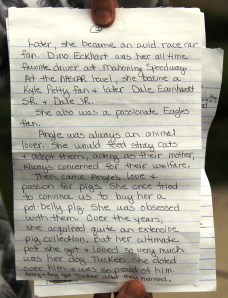 Later, she became an avid race car
fan. Dino Eckhart was her all time
favorite driver at Mahoning Speedway.
At the NASCAR level, she became a
Kyle Petty fan & later Dale Earnhardt
SR. & Dale JR.
She also was a passionate Eagles
fan.
Angie was always an animal
lover. She would feed stray cats
& adopt them, acting as their mother,
Always concerned for their welfare.
Then came Angie's love &
passion for pigs. She once tried
to convince us to buy her a
pot-belly pig. She was obsessed
with them. Over the years,
she acquired quite an extensive
pig collection, but her ultimate
pet she got & loved so very much
was her dog Tucker. She doted
over him & was so proud of him
Tucker